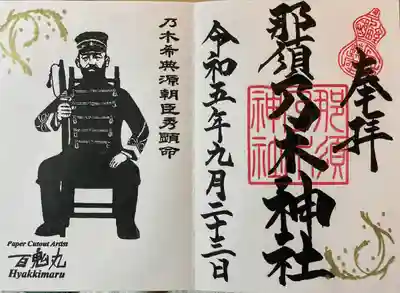 奉拝
那須乃木神社
那須
神社
令和五年九月二十三日
乃木希典源朝臣秀顕命
Paper Cutout Artist
百鬼丸
Hyakkimaru